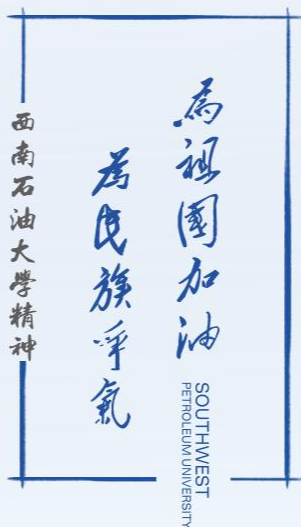 為祖國加油
為民族爭氣
西南石油大學精神
SOUTHWEST
PETROLEUM UNIVERSITY